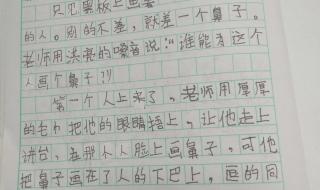 只见黑板上画着
的人。别的不差，就差一个鼻子。
老师用洪亮的嗓音说：“谁能为这个
人画个鼻子？”
第一个人上来了，老师用厚厚
的毛巾把他的眼睛捂上，让他走上
讲台，在那个人脸上画鼻子，可他
把鼻子画在了人的下巴上，逗的同